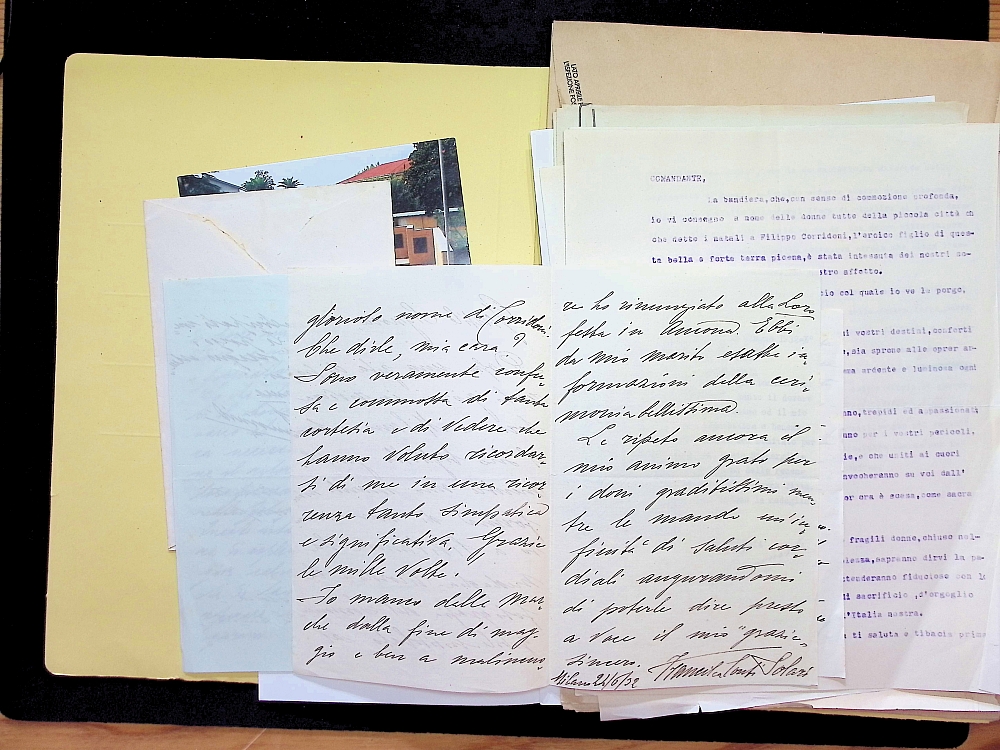 glorioso nome di Corridoni.
Che dirle, mia cara?
Sono veramente confu-
sa e commossa di tanta
cortesia e di vedere che
hanno voluto ricordar-
si di me in una ricor-
renza tanto simpatica
e significativa. Grazie
le mille volte.
Io manco dalle Mar-
che dalla fine di mag-
gio e ben a malincuo-
re ho rinunziato alla Loro
festa in Ancona. Ebbi
da mio marito esatte in-
formazioni della ceri-
monia bellissima.
Le ripeto ancora il
mio animo grato per
i doni graditissimi men-
tre le mando un'in-
finità di saluti cor-
diali augurandomi
di poterle dire presto
a voce il mio "grazie"
sincero.
Milano 24/6/32 Conti Solari
LATO APRIBILE
ISPEZIONE POS
COMANDANTE,
la bandiera,che,con senso di commozione profonda,
io vi consegno a nome delle donne tutte della piccola città
che dette i natali a Filippo Corridoni,l'eroico figlio di ques-
ta bella e forte terra picena,è stata intessuta dei nostri
stro affetto.
cio col quale io ve la porgo,
i vostri destini,conforti
,sia sprone alle opere
ardente e luminosa ogni
nno,trepidi ed appassionati
ano per i vostri pericoli,
ie,e che uniti ai cuori
nvocheranno su voi dall'
or ora è scesa,come sacra
fragili donne,chiuse nel-
ienza,sapranno dirvi la pa-
ttenderanno fiduciose con
di sacrificio ,d'orgoglio
l'Italia nostra.
ti saluta e tibacia